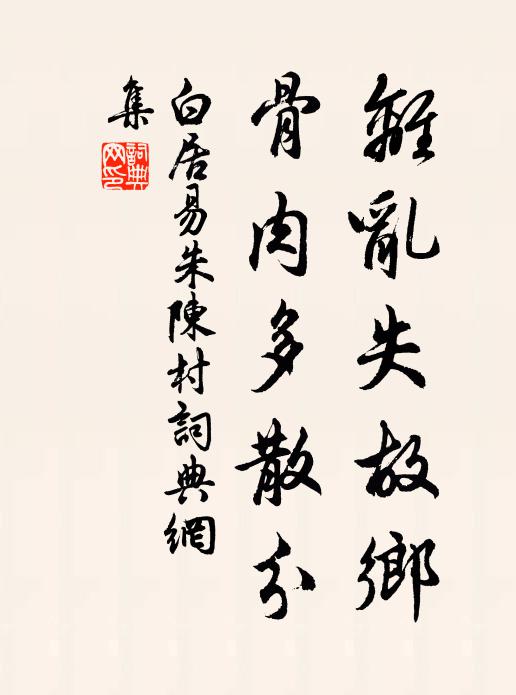 離亂失故鄉
骨肉多散分
白居易朱陳村詞典網
集
詞典
网印